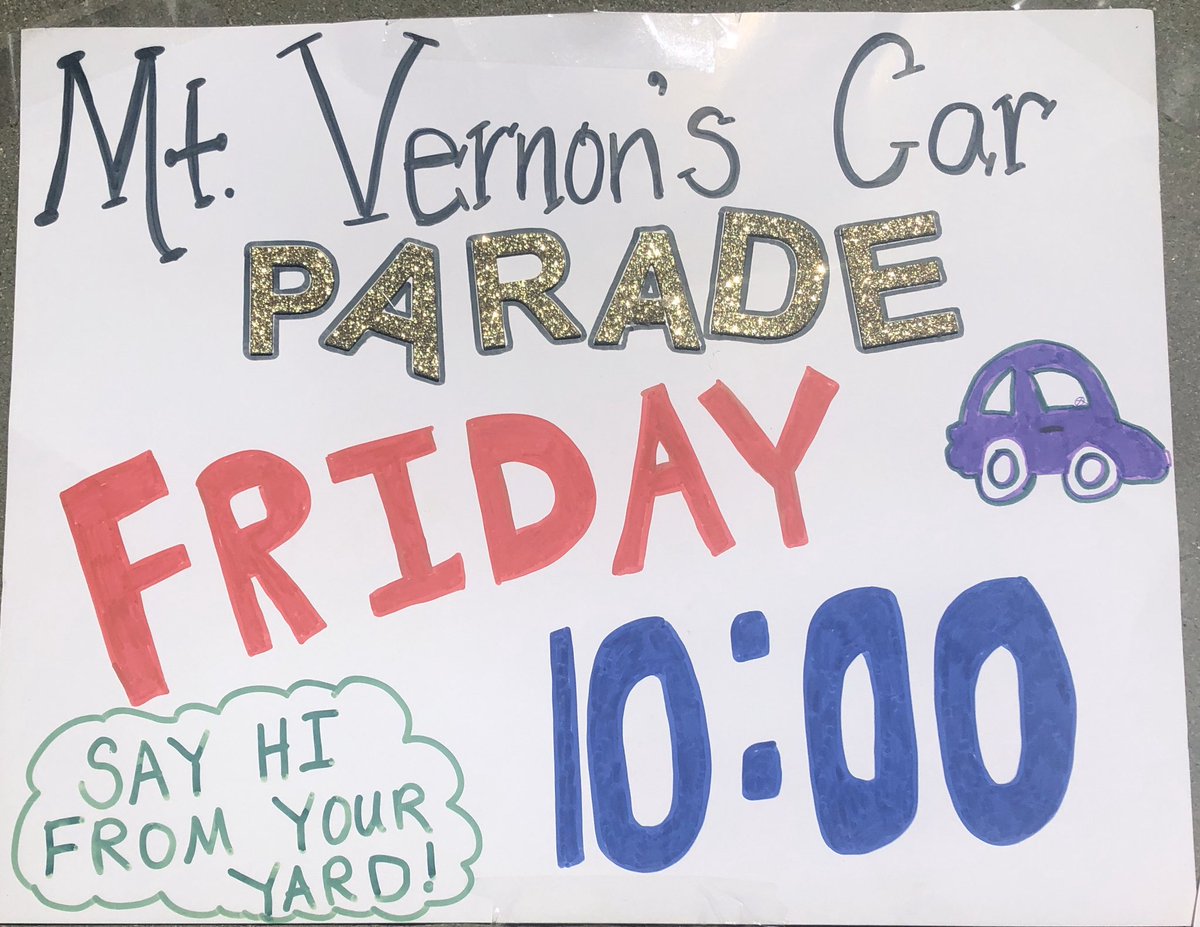 Mt. Vernon's Car
PARADE
FRIDAY
10:00
SAY HI
FROM YOUR
YARD!